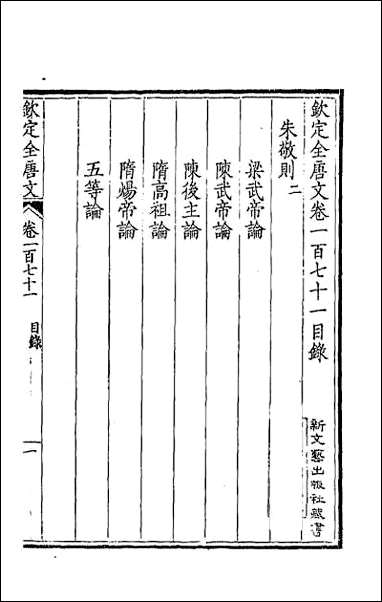 欽定全唐文卷一百七十一目錄
新文藝出版社藏書
朱敬則二
梁武帝論
陳武帝論
陳後主論
隋高祖論
隋煬帝論
五等論
欽定全唐文
卷一百七十一
目錄
一